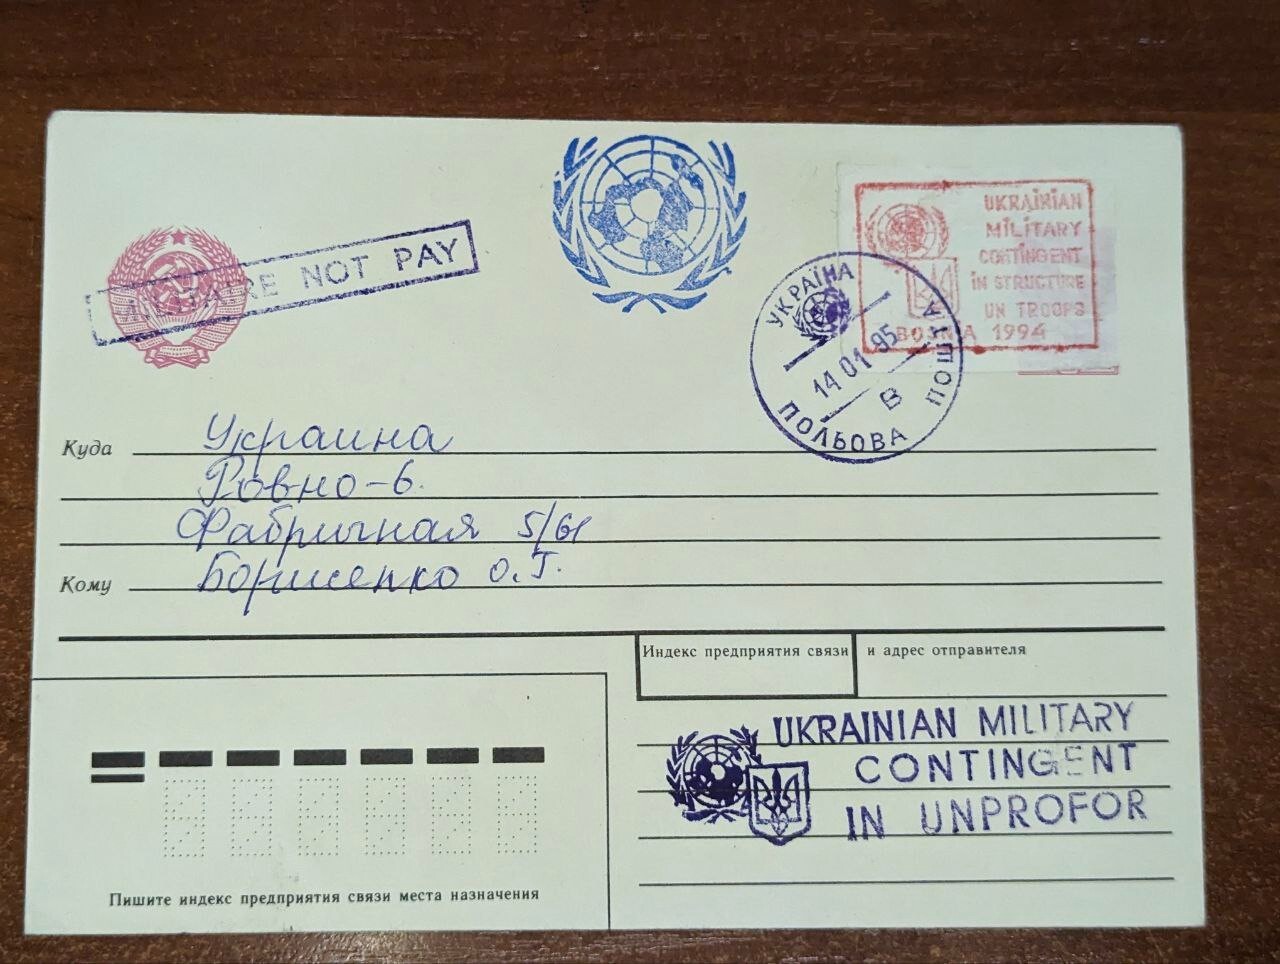 NOT PAY
UKRAINIAN
MILITARY
CONTINGENT
IN STRUCTURE
UN TROOPS
BOSNIA 1994
УКРАЇНА
14 01 95
В
ПОЛЬОВА ПОШТА
Куда Украина
Ровно-6.
Фабричная 5/61
Кому Борисенко О.Г.
Индекс предприятия связи и адрес отправителя
UKRAINIAN MILITARY
CONTINGENT
IN UNPROFOR
Пишите индекс предприятия связи места назначения